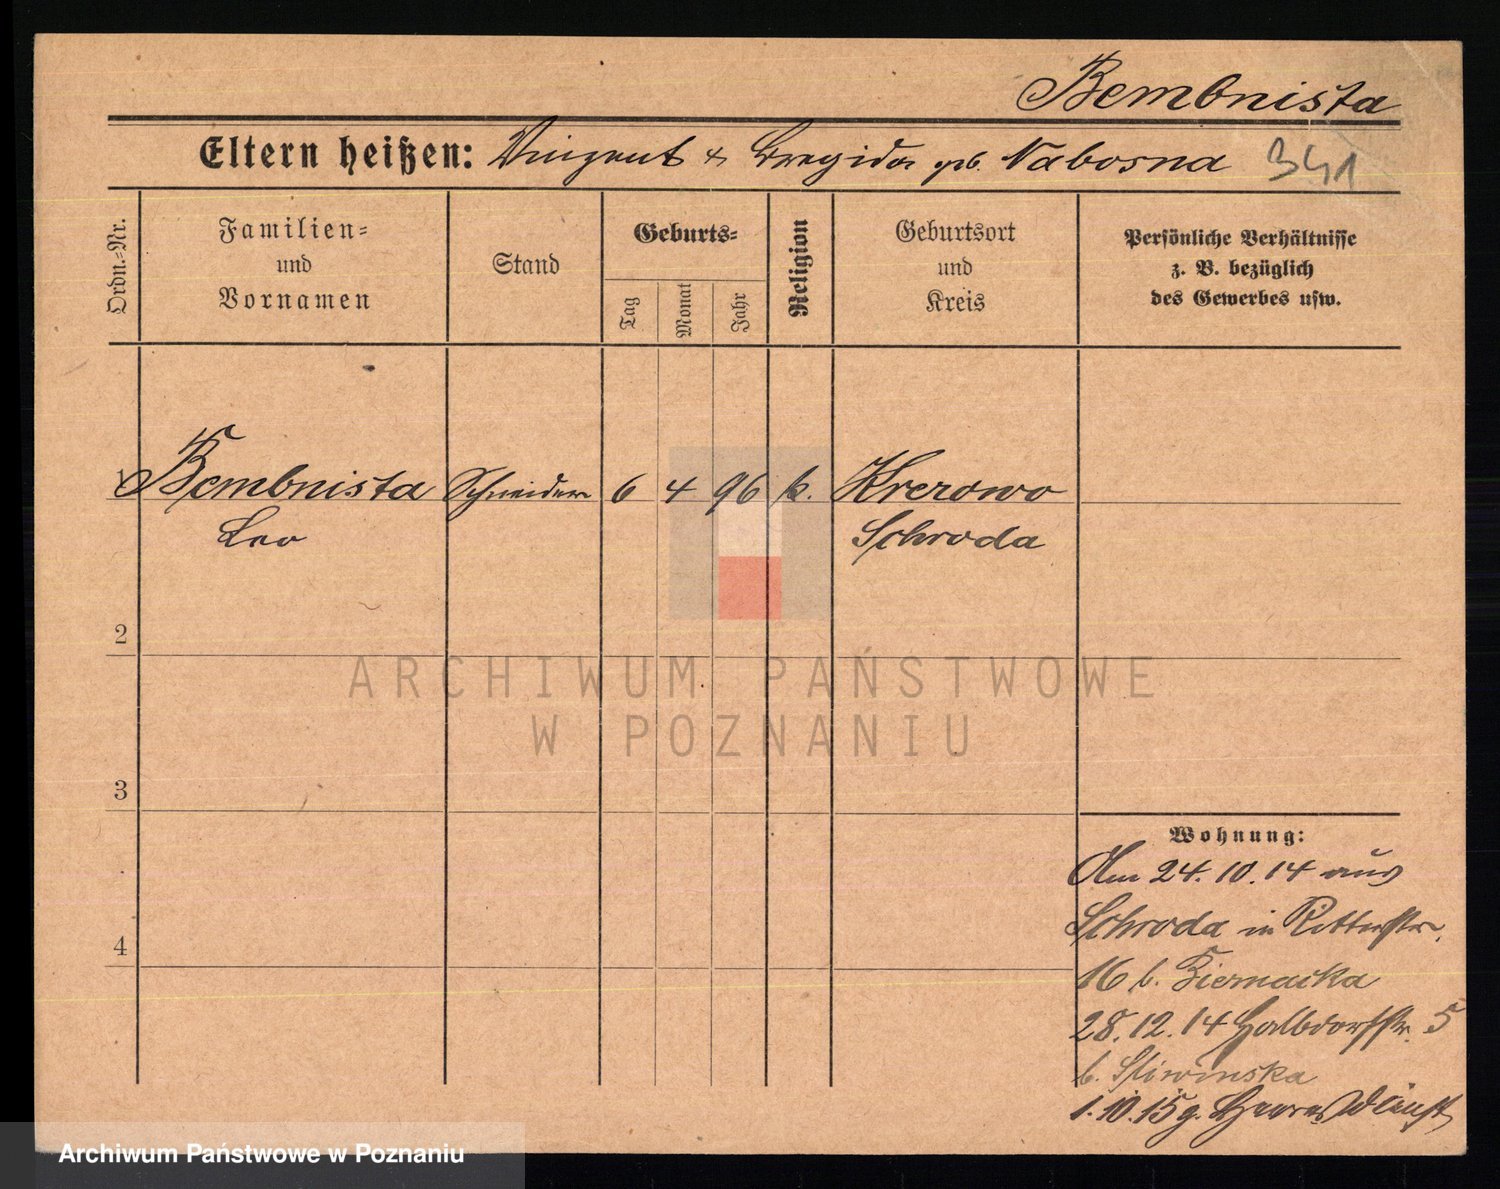 Bembnista
Eltern heißen: Vinzent & Bregida geb. Nabosna 341
Ordn.-Nr.
Familien-
und
Vornamen
Stand
Geburts-
Tag
Monat
Jahr
Religion
Geburtsort
und
Kreis
Persönliche Verhältnisse
z. B. bezüglich
des Gewerbes usw.
1 Bembnista Schneider 6 4 96 k. Krerowo
Leo Schroda
2
3
4
Wohnung:
Am 24.10.14 aus
Schroda in Ritterstr.
16 b. Biernacka
28.12.14 Halbdorfstr. 5
b. Sliwinska
1.10.15 z. Heeresdienst
ARCHIWUM PAŃSTWOWE
W POZNANIU
Archiwum Państwowe w Poznaniu